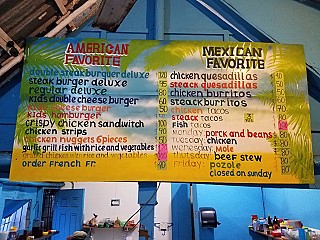 AMERICAN
FAVORITE
double steak burguer deluxe
steak burger deluxe
regular deluxe
kid's double cheese burger 60
kid's cheese burger
kid's hamburger
crispy chicken sandwitch 100
chicken strips 90
chicken nuggets 6pieces
garlic grill fish with rice and vegetables
grilled chicken with rice and vegetables
order French Fr.
MEXICAN
FAVORITE
chicken quesadillas
steack quesadillas
chicken burritos
steack burritos
chicken tacos
steack tacos
fish tacos
monday porck and beans
tuesday chicken
wenesday mole
thursday beef stew
friday pozole 80
closed on sunday